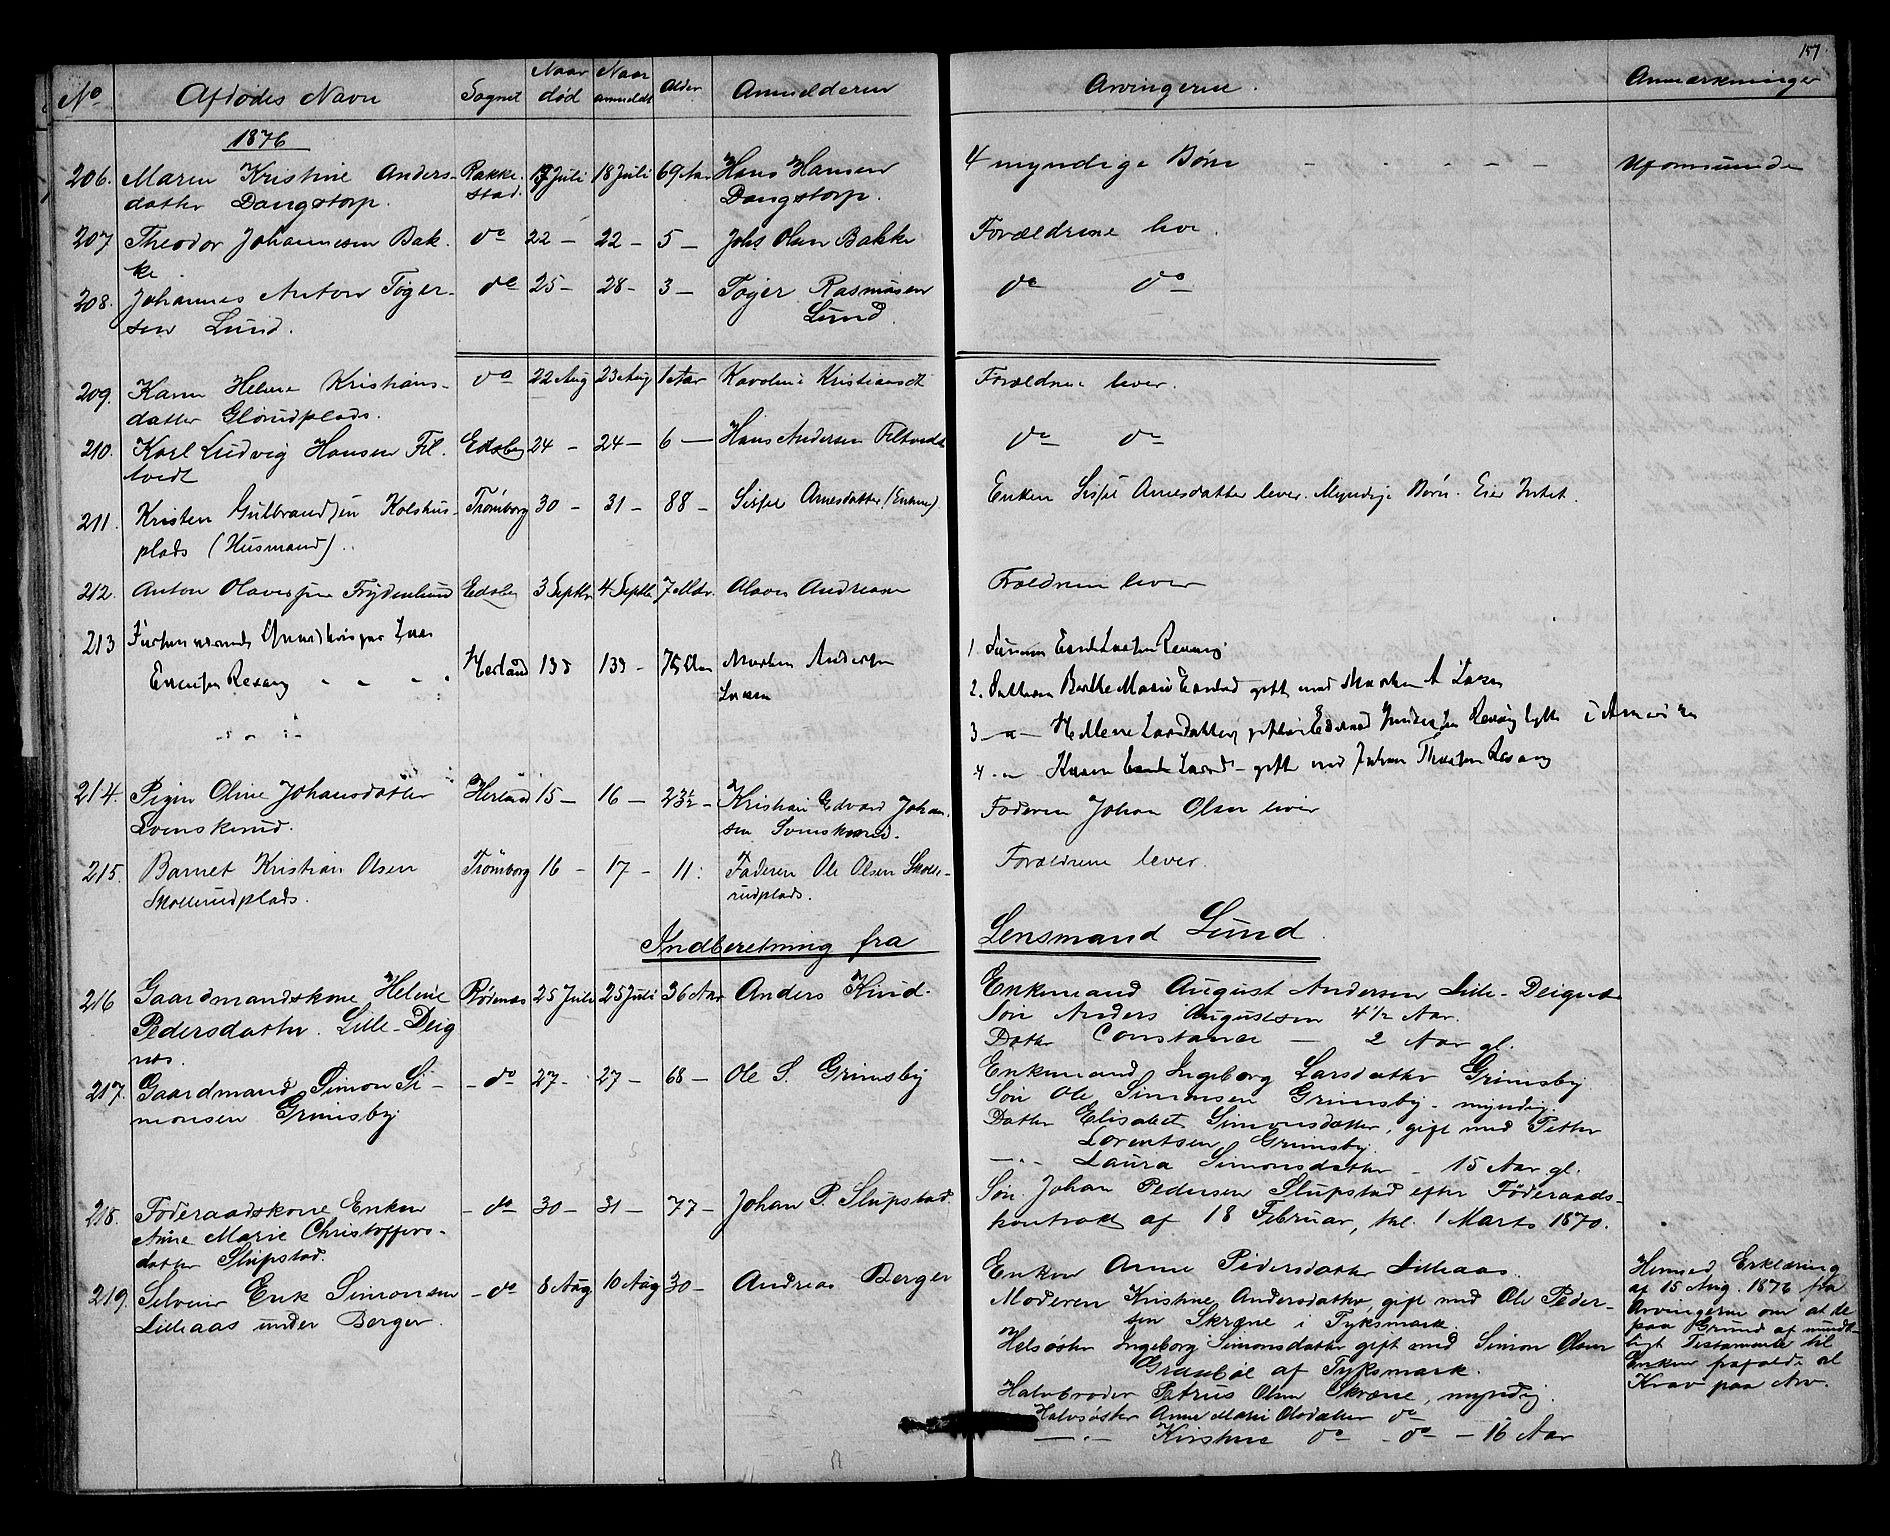 157
No Afdødes Navn Sognet Naar død Naar anmeldt Alder Anmelderen Arvingerne. Anmærkninger
1876
206. Maren Kristine Anders- Rakke- 17 Juli 18 Juli 69 Aar Hans Hansen 4 myndige Børn - - - - - Uformuende
datter Dangstorp. stad. Dangstorp.
207 Theodor Johannesen Bak- do 22 - 22 - 5 - Johs Olsen Bakke Forældrene leve.
ke
208. Johannes Anton Tøger- do 25 - 28 - 3 - Tøger Rasmusen do do
sen Lund. Lund.
209. Karen Helene Kristians- do 22 Aug 23 Aug 1 Aar Karoline Kristiansdt Forældrene lever.
datter Glørudplads.
210. Karl Ludvig Hansen Fil- Edsberg 24 - 24 - 6 - Hans Andersen Filtvedt do do
tvedt
211. Kristen Gulbrandsen Kolshus- Trømborg 30 - 31 - 88 - Sissel Arnesdatter (Enken) Enken Sissel Arnesdatter lever. Myndige Børn. Eier Intet.
plads (Husmand).
212. Anton Olavesen Frydenlund Edsberg 3 Septbr 4 Septbr 7 Mdr. Olaves Andreasen Forældrene lever
213 Lars Herland 13 13 - 75 Aar Morten Andersen 1. Sønnen Larsen Revaug
Revaug - - - Larsen 2. Datteren Berthe Marie gift med Morten A Larsen
3 - Hellene Larsdatter, gift Revaug i Amerika
4. - Karen Larsd - gift med Johan Revaug
214. Pigen Oline Johansdatter Herland 15 - 16 - 23½ - Kristian Edvard Johan- Faderen Johan Olsen lever
Svenskerud. sen Svenskerud.
215. Barnet Kristian Olsen Trømborg 16 - 17 - 11: Faderen Ole Olsen Molle- Forældrene lever.
Mollerudplads. rudplads.
Indberetning fra Lensmand Lund.
216 Gaardmandskone Helene Rødenæs 25 Juli 25 Juli 36 Aar Anders Kind. Enkemand August Andersen Lille-Deignæs
Pedersdatter. Lille-Deig Søn Anders Augustsen 4 1/2 Aar.
næs. Datter Constance - 2 Aar gl.
217. Gaardmand Simon Si- - do 27 - 27 - 68 - Ole S. Grimsby Enkemand Ingeborg Larsdatter Grimsby
monsen Grimsby Søn Ole Simonsen Grimsby - myndig.
Datter Elisabet Simonsdatter, gift med Petter
Lorentsen Grimsby.
- - Laura Simonsdatter - 15 Aar gl.
218. Føderaadskone Enken - do 30 - 31 - 77 - Johan P. Slupstad. Søn Johan Pedersen Slupstad efter Føderaads-
Anne Marie Christoffers- kontrakt af 18 Februar, tal. 1 Marts 1870.
datter Slupstad.
219. Selveier Erik Simonsen - do 8 Aug 10 Aug 30 - Andreas Berger Enken Anne Pedersdatter Lilleaas. Henved Erklæring
Lilleaas under Berger. Moderen Kristine Andersdatter, gift med Ole Peder- af 15 Aug. 1876 fra
sen Skræne i Tyksmark. Arvingerne om at de
Helsøster Ingeborg Simonsdatter gift med Simon Olsen paa Grund af mundt-
Graabøl af Tyksmark. ligt Testamente til
Halvbroder Petrus Olsen Skræne, myndig. Enken frafaldt al
Halvsøster Anne Marie Olsdatter do Krav paa Arv.
- - Kirstine do - do - 16 Aar